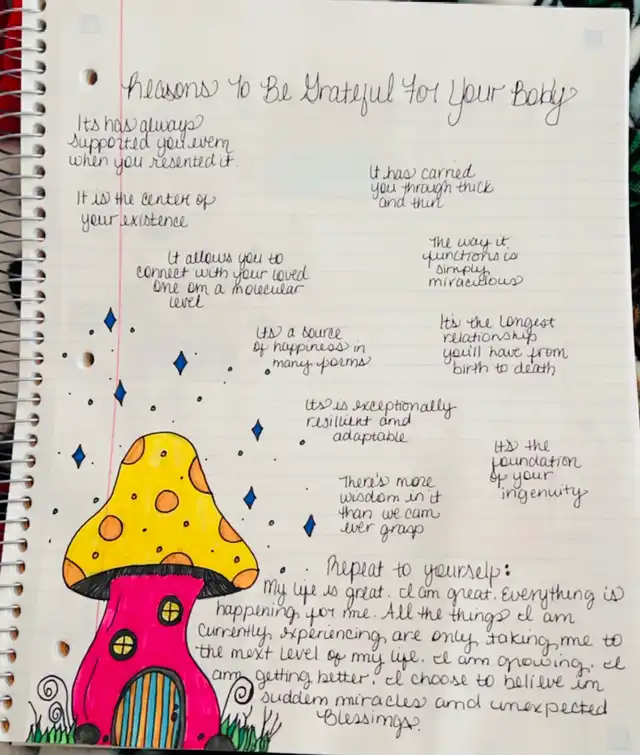 Reasons To Be Grateful For Your Body
Its has always
supported you even
when you resented it.
It has carried
you through thick
and thin
It is the center of
your existence
The way it
functions is
simply
miraculous
It allows you to
connect with your loved
one on a molecular
level
It's the longest
relationship
you'll have from
birth to death
Its a source
of happiness in
many forms
Its is exceptionally
resilient and
adaptable
Its the
foundation
of your
ingenuity
There's more
wisdom in it
than we can
ever grasp
Repeat to yourself:
My life is great. I am great. Everything is
happening for me. All the things I am
currently experiencing are only taking me to
the next level of my life. I am growing. I
am getting better. I choose to believe in
sudden miracles and unexpected
Blessings.